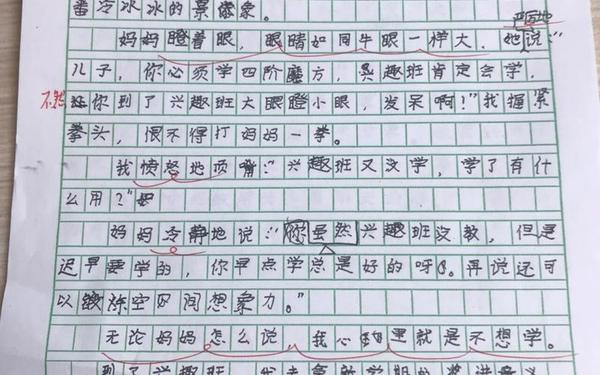 番冷冰冰的景象。
严厉地
妈妈瞪着眼，眼睛如同牛眼一样大，她说：“
儿子，你必须学四阶魔方，兴趣班肯定会学，
不然你到了兴趣班大眼瞪小眼，发呆啊！”我握紧
拳头，恨不得打妈妈一拳。
我愤怒地顶嘴：“兴趣班又没学，学了有什
么用？”
妈妈冷静地说：“你虽然兴趣班没教，但是
迟早要学的，你早点学总是好的呀。再说还可
以 空间想象力。”
无论妈妈怎么说，我心里就是不想学。
到了兴趣班，我